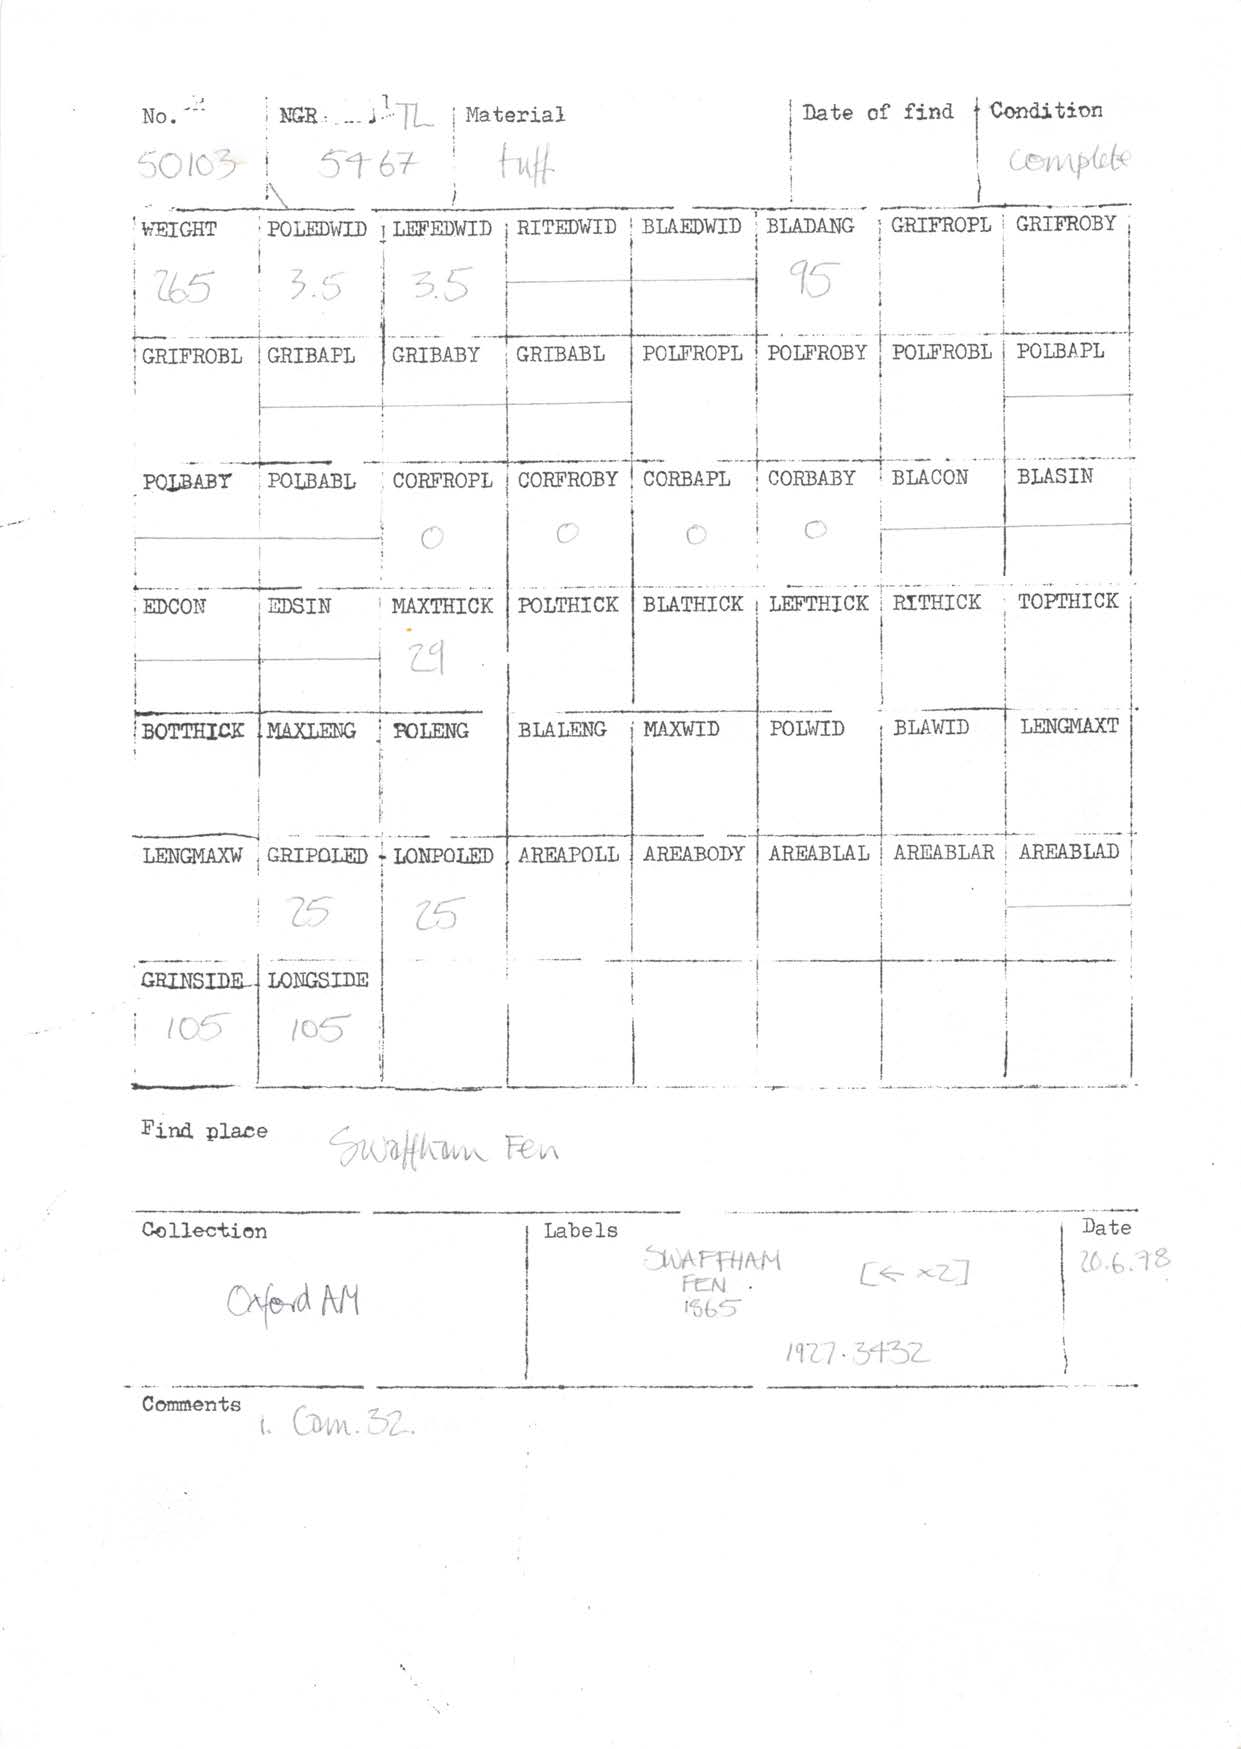 No. NGR TL Material Date of find Condition
50103 5467 tuff complete
WEIGHT POLEDWID LEFEDWID RITEDWID BLAEDWID BLADANG GRIFROPL GRIFROBY
265 3.5 3.5 95
GRIFROBL GRIBAPL GRIBABY GRIBABL POLFROPL POLFROBY POLFROBL POLBAPL
POLBABY POLBABL CORFROPL CORFROBY CORBAPL CORBABY BLACON BLASIN
0 0 0 0
EDCON EDSIN MAXTHICK POLTHICK BLATHICK LEFTHICK RITHICK TOPTHICK
29
BOTTHICK MAXLENG POLENG BLALENG MAXWID POLWID BLAWID LENGMAXT
LENGMAXW GRIPOLED LONPOLED AREAPOLL AREABODY AREABLAL AREABLAR AREABLAD
25 25
GRINSIDE LONGSIDE
105 105
Find place Swaffham Fen
Collection Labels Date
SWAFFHAM [← x2] 20.6.78
FEN
Oxford AM 1865
1927.3432
Comments 1. Cam. 32.